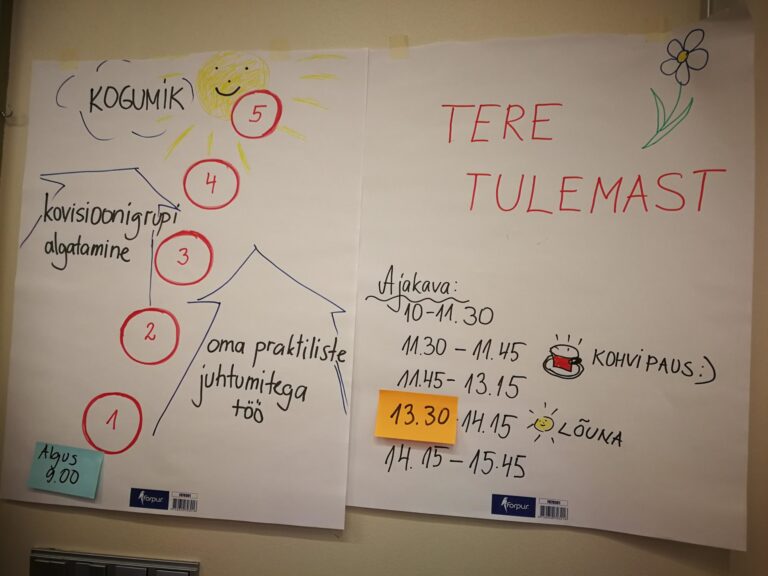 KOGUMIK
5
4
kovisioonigrupi
algatamine
3
2
oma praktiliste
juhtumitega
töö
1
Algus
9.00
forpur
TERE
TULEMAST
Ajakava:
10-11.30
11.30 - 11.45 KOHVIPAUS:)
11.45 - 13.15
13.30 - 14.15 LÕUNA
14.15 - 15.45
forpur